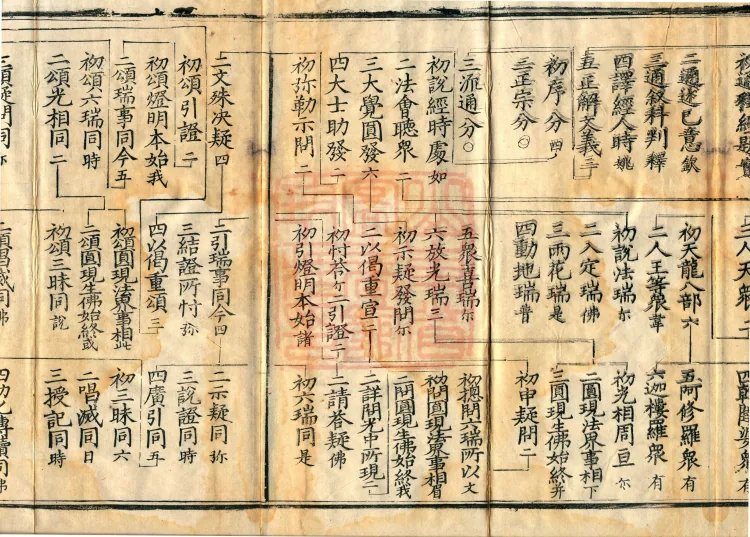 初通釋經題實
二通述已意欽
三通敘科判釋
四譯經人時姚
五正解文義三
二正宗分〇
初序分四
三流通分〇
初說經時處如
二法會聽衆二
三大覺圓發六
四大士助發二
初弥勒示問二
二文殊决疑四
初頌引證二
初頌燈明本始我
二頌瑞事同今五
初頌六瑞同時
二頌光相同二
三頌疑問同弥
二人天衆
初天龍八部六
二人王等衆韋
初說法瑞尓
二入定瑞佛
三雨花瑞是
四動地瑞普
五衆喜瑞尓
六放光瑞三
初示疑發問尓
二以偈重宣二
初忖答ケ二引證二
初引燈明本始諸
二引瑞事同今四
三結證所忖弥
四以偈重頌三
初頌圓現法界事相此
二頌圓現生佛始終或
初頌三昧同說
二頌唱滅同佛
四乾闥婆衆有
五阿修羅衆有
六迦樓羅衆有
初光相周亘尓
二圓現法界事相下
三圓現生佛始終并
初申疑問二
初揔問六瑞所以文
初問圓現法界事相眉
二問圓現生佛始終我
二詳問光中所現二
二請答疑佛
初六瑞同是
二示疑同弥
三說證同時
四廣引同五
初三昧同六
二唱滅同日
三授記同時
四助化傳續同佛